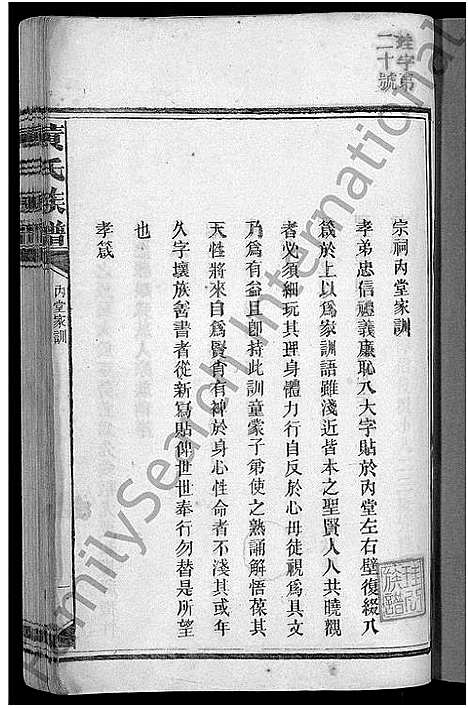 姓字第
二十號
宗祠內堂家訓
孝弟忠信禮義廉恥八大字貼於內堂左右壁復綴八
箴於上以為家訓語雖淺近皆本之聖賢人人共曉觀
者必須細玩其理身體力行自反於心毋徒視為具文
乃為有益且卽持此訓童蒙子弟使之熟誦解悟葆其
天性將來自為賢肖有裨於身心性命者不淺其或年
久字壞族善書者從新寫貼俾世世奉行勿替是所望
也
孝箴
黃氏族譜
內堂家訓
一
族譜
FamilySearch International